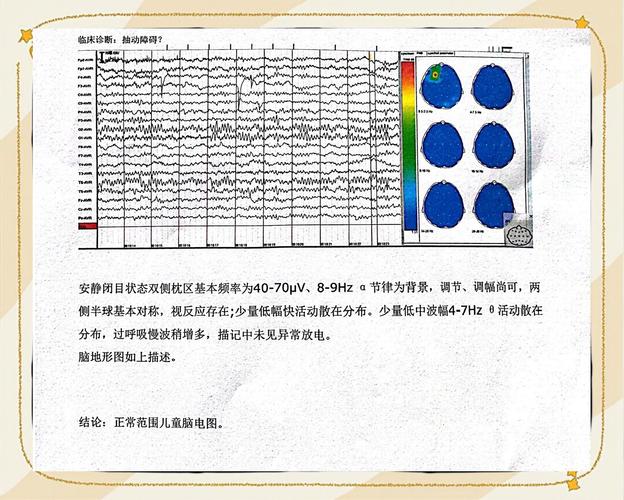 临床诊断：抽动障碍？
安静闭目状态双侧枕区基本频率为40-70μV、8-9Hz α 节律为背景，调节、调幅尚可，两
侧半球基本对称，视反应存在;少量低幅快活动散在分布。少量低中波幅4-7Hz θ 活动散在
分布，过呼吸慢波稍增多，描记中未见异常放电。
脑地形图如上描述。
结论：正常范围儿童脑电图。